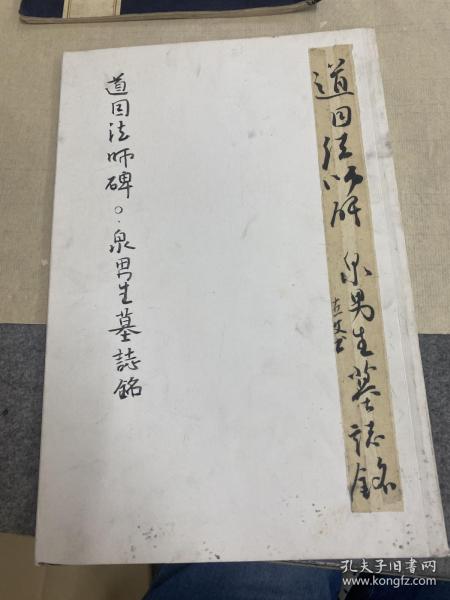 道因法师碑 泉男生墓誌銘
道因法师碑○·泉男生墓誌銘
孔夫子旧书网
www.kongfz.com